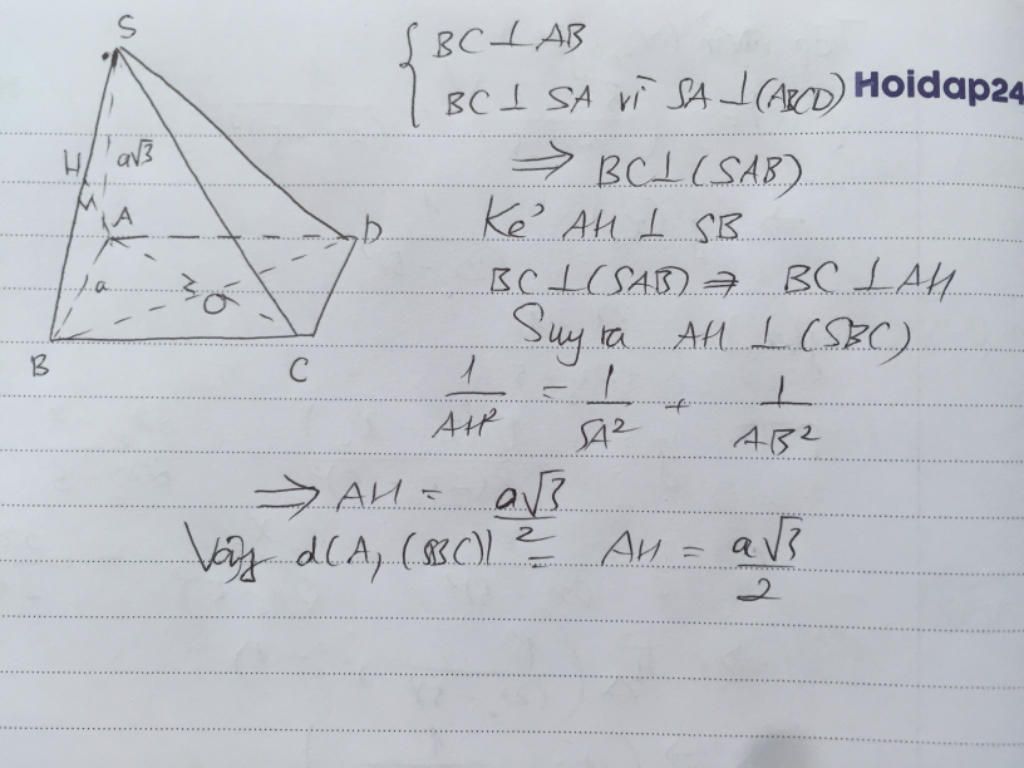 S
{ BC ⊥ AB
BC ⊥ SA vì SA ⊥ (ABCD)
Hoidap24
H
a√3
⇒ BC ⊥ (SAB)
A
D
Kẻ AH ⊥ SB
a
O
BC ⊥ (SAB) ⇒ BC ⊥ AH
B
C
Suy ra AH ⊥ (SBC)
1/AH² = 1/SA² + 1/AB²
⇒ AH = a√3/2
Vậy d(A, (SBC)) = AH = a√3/2